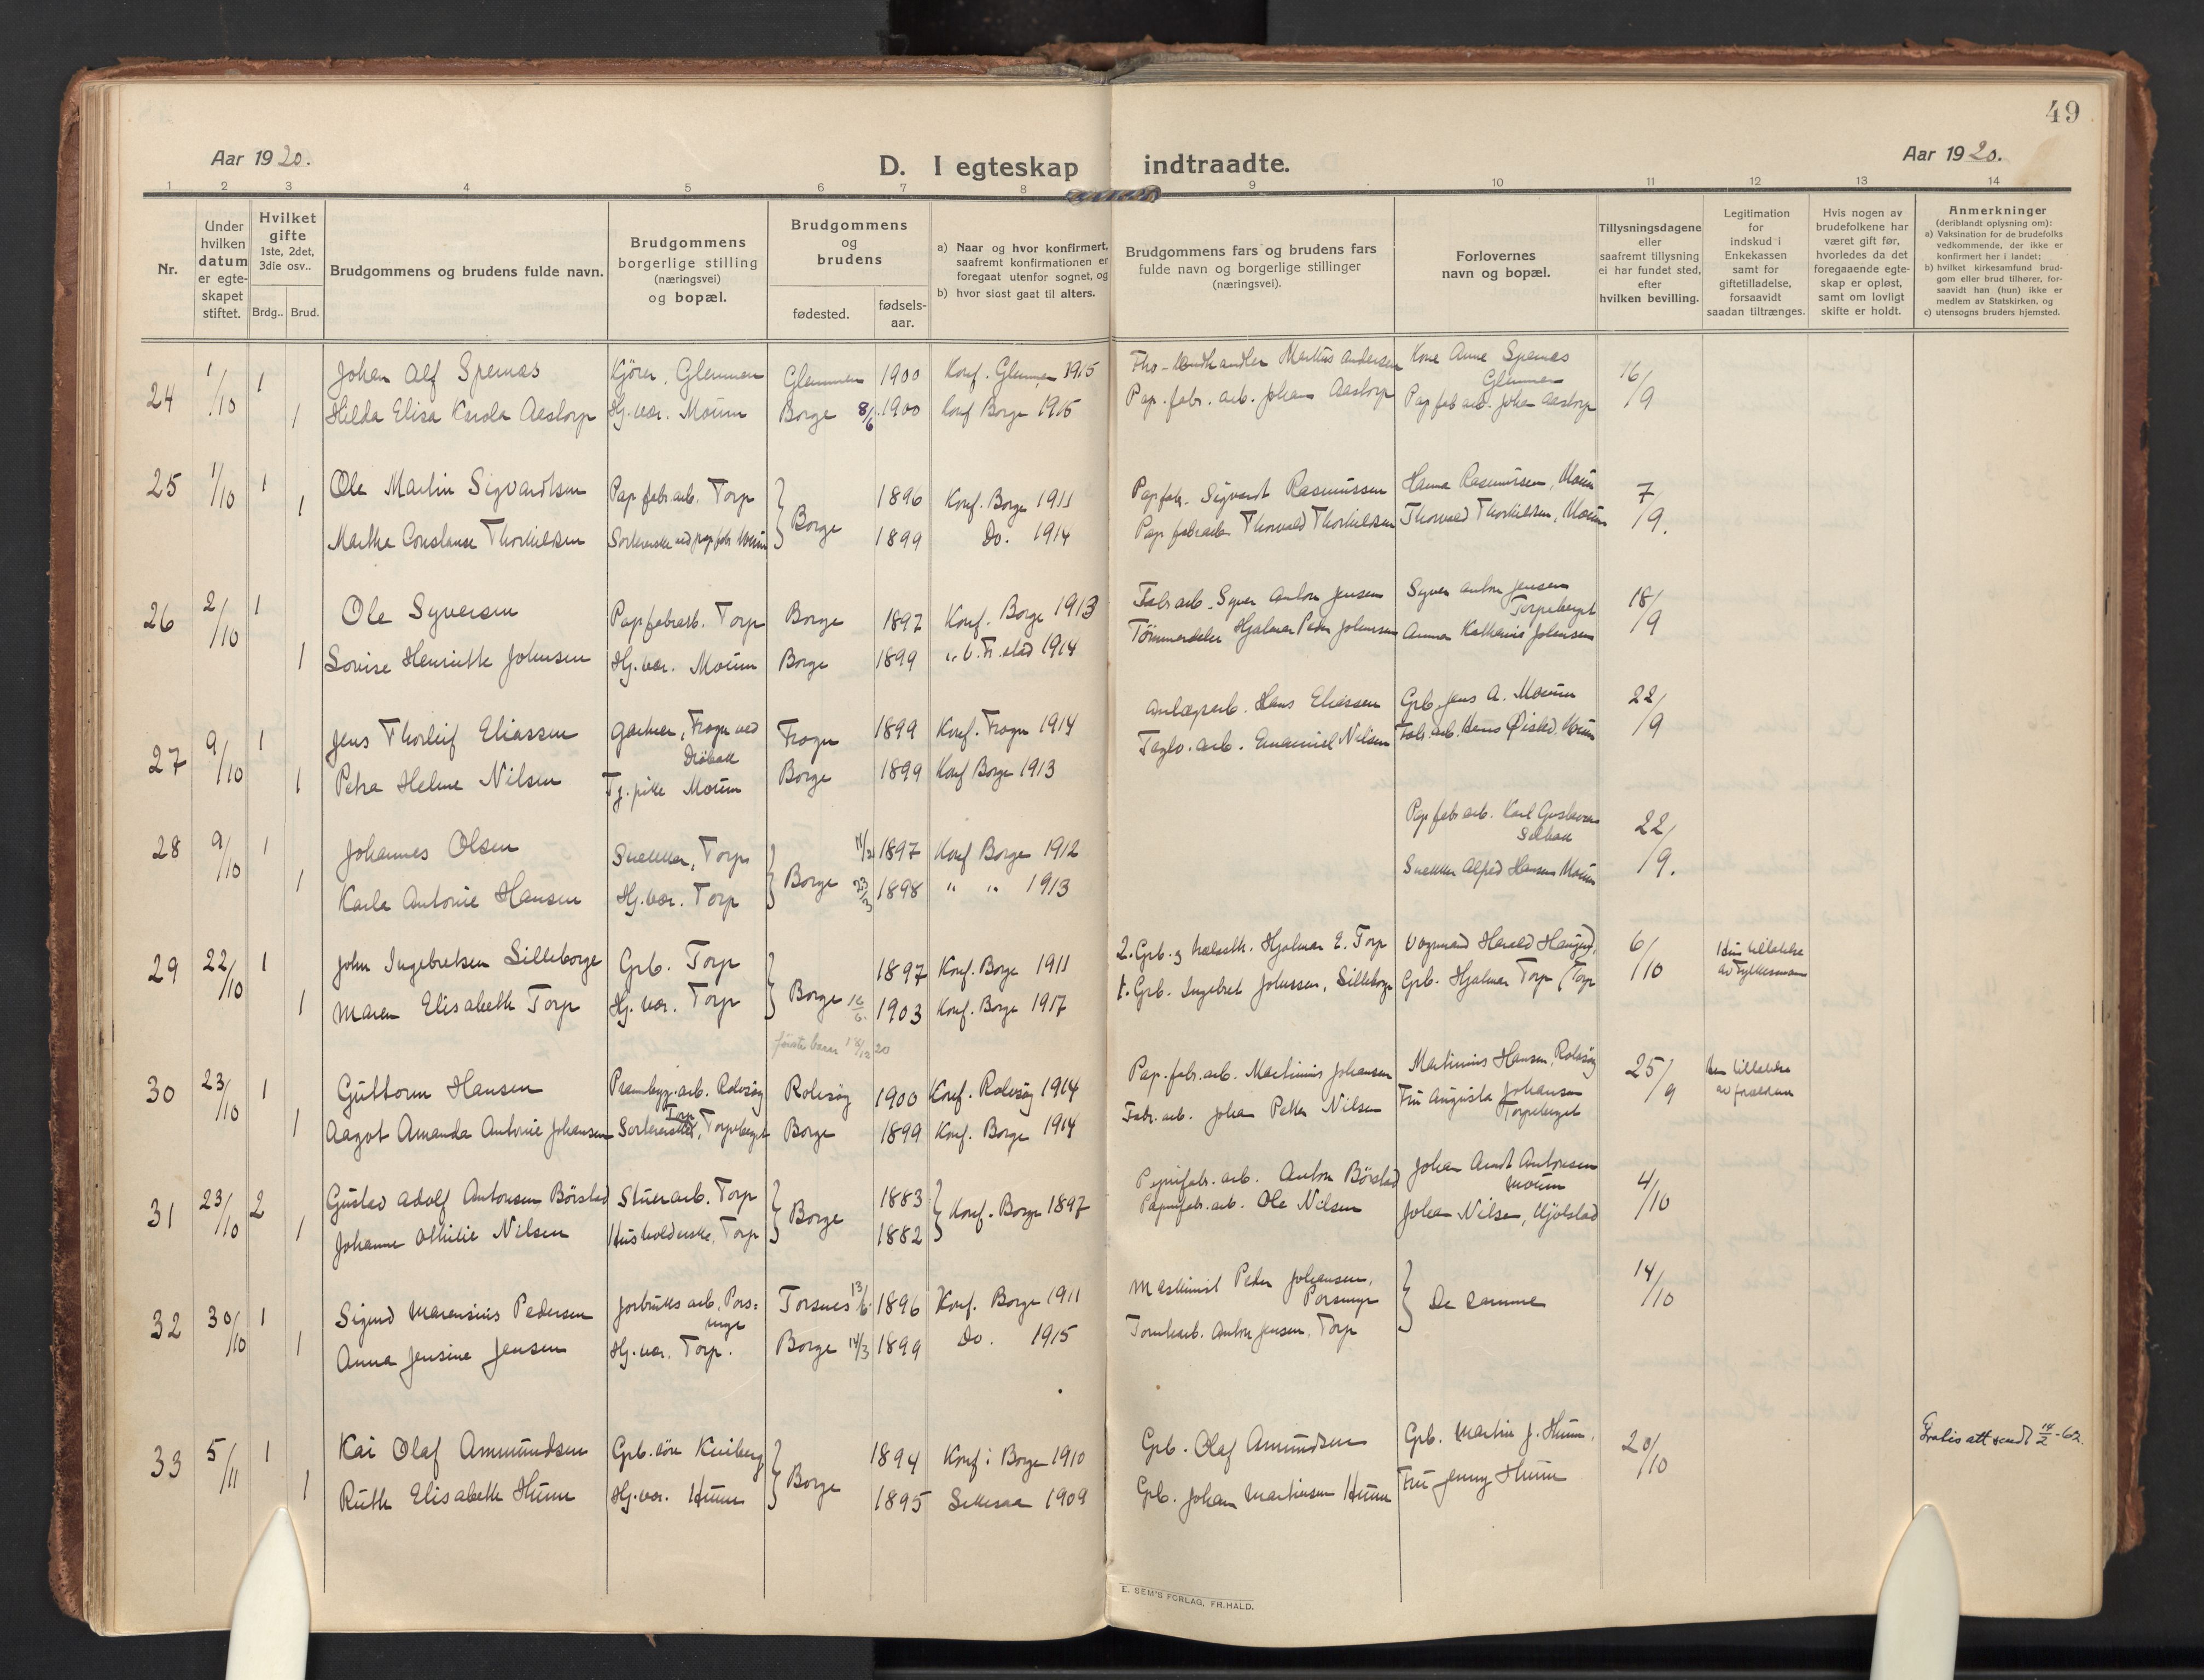 49
Aar 1920.
D. I egteskap indtraadte.
Aar 1920.
1 2 3 4 5 6 7 8 9 10 11 12 13 14
Nr.
Under
hvilken
datum
er egte-
skapet
stiftet.
Hvilket
gifte
1ste, 2det,
3die osv..
Brdg.. Brud.
Brudgommens og brudens fulde navn.
Brudgommens
borgerlige stilling
(næringsvei)
og bopæl.
Brudgommens
og
brudens
fødested.
fødsels-
aar.
a) Naar og hvor konfirmert,
saafremt konfirmationen er
foregaat utenfor sognet, og
b) hvor sidst gaat til alters.
Brudgommens fars og brudens fars
fulde navn og borgerlige stillinger
(næringsvei).
Forlovernes
navn og bopæl.
Tillysningsdagene
eller
saafremt tillysning
ei har fundet sted,
efter
hvilken bevilling.
Legitimation
for
indskud i
Enkekassen
samt for
giftetilladelse,
forsaavidt
saadan tiltrænges.
Hvis nogen av
brudefolkene har
været gift før,
hvorledes da det
foregaaende egte-
skap er opløst,
samt om lovligt
skifte er holdt.
Anmerkninger
(deriblandt oplysning om):
a) Vaksination for de brudefolks
vedkommende, der ikke er
konfirmert her i landet;
b) hvilket kirkesamfund brud-
gom eller brud tilhører, for-
saavidt han (hun) ikke er
medlem av Statskirken, og
c) utensogns bruders hjemsted.
24 1/10 1 Johan Alf Spernæs Kjører, Glemmen Glemmen 1900 Konf. Glemmen 1915 Markus Andersen Kone Anne Spernæs Glemmen 16/9
1 Hilda Elisa Karola Aastorp Hj. vær. Moum Borge 8/6 1900 Konf Borge 1915 Pap. fabr. arb. Johan Aastorp Pap fab arb. Johan Aastorp
25 1/10 1 Ole Martin Sigvardtsen Pap fabr arb. Torp Borge 1896 Konf. Borge 1911 Papfabr. Sigvardt Rasmussen Hanna Rasmussen, Moum 7/9.
1 Martha Constanse Thorkilsen Sorterske ved papfabr Moum 1899 Do. 1914 Pap fabrarb Thorvald Thorkilsen Thorvald Thorkilsen, Moum
26 2/10 1 Ole Syversen Papfabrarb. Torp Borge 1897 Konf. Borge 1913 Fabr arb. Syver Anton Jensen Syver Anton Jensen Torpeberget 18/9
1 Lovise Henriette Johnsen Hj. vær. Moum Borge 1899 1914 Tømmerdeler Hjalmar Peder Johansen Anna Katharina Johansen
27 9/10 1 Jens Thorleif Eliassen Gartner, Frogn ved Drøbak Frogn 1899 Konf. Frogn 1914 Anlægsarb. Hans Eliassen Grb. Jens A. Moum 22/9
1 Petra Helene Nilsen Tj. pike Moum Borge 1899 Konf Borge 1913 Teglv. arb. Emanuel Nilsen Fabr. arb. Hans Øisted, Moum
28 9/10 1 Johannes Olsen Snekker, Torp Borge 1897 Konf Borge 1912 Pap fabr arb. Karl Gustavsen Selbak 22/9.
1 Karla Antonie Hansen Hj. vær. Torp 23/3 1898 " " 1913 Snekker Alfred Hansen Moum
29 22/10 1 John Ingebretsen Silleborge Grb. Torp Borge 1897 Konf. Borge 1911 2. Grb. og Hjalmar E. Torp Harald Haugen, 6/10
1 Maren Elisabeth Torp Hj. vær. Torp 16/6. 1903 Konf. Borge 1917 1. Grb. Ingebret Johnssen, Silleborge Grb. Hjalmar Torp (Torp
første barn 18/12 20
30 23/10 1 Guttorm Hansen Prambygg. arb. Rolvsøy Rolvsøy 1900 Konf. Rolvsøy 1914 Pap. fabr. arb. Martinius Johansen Martinius Hansen, Rolvsøy 25/9
1 Aagot Amanda Antonie Johansen Sortererske, Torpeberget Borge 1899 Konf. Borge 1914 Fabr. arb. Johan Petter Nilsen Fru Augusta Johansen Torpeberget
31 23/10 2 Gustav Adolf Antonsen Børstad Stuerarb. Torp Borge 1883 Konf. Borge 1897 Papirfabr. arb. Anton Børstad Johan Arndt Antonsen Moum 4/10
1 Johanne Othilie Nilsen Husholderske, Torp 1882 Papirfabr. arb. Ole Nilsen Johan Nilsen, Kjølstad
32 30/10 1 Sigurd Marensius Pedersen Jorbruks arb, Pors= myr Torsnes 13/6. 1896 Konf. Borge 1911 Maskinist Peder Johansen, Porsmyr De samme 14/10
1 Anna Jensine Jensen Hj. vær. Torp. Borge 14/3 1899 Do. 1915 Tomtearb. Anton Jensen, Torp
33 5/11 1 Kai Olaf Ammundsen Grb. søn Kniberg Borge 1894 Konf: Borge 1910 Grb. Olaf Amundsen Grb. Martin J. Hunn, 20/10 Gratis att sendt 14/2-62.
1 Ruth Elisabeth Hunn Hj. vær. Hunn 1895 1909 Grb. Johan Martinsen Hunn Fru Jenny Hunn
E. SEM'S FORLAG, FR.HALD.